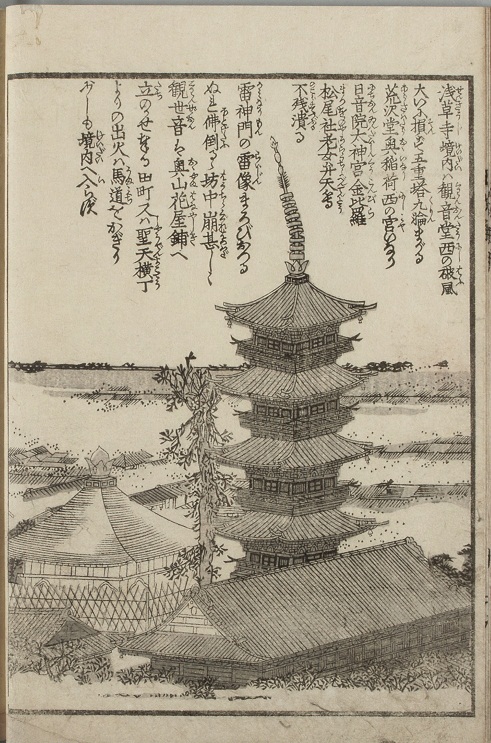 浅草寺境内ハ観音堂西の破風
大いに損して五重塔九輪まがる
荒沢堂奥稲荷西の宮いなり
日音院女神宮金比羅
松尾社老女弁天等
不残潰る
雷神門の雷像まろびおつる
ぬれ佛倒る坊中崩甚し
観世音ら奥山花屋鋪へ
立のせ給ふ田町又ハ聖天横丁
よりの出火ハ馬道をかぎり
少しも境内へ入らず